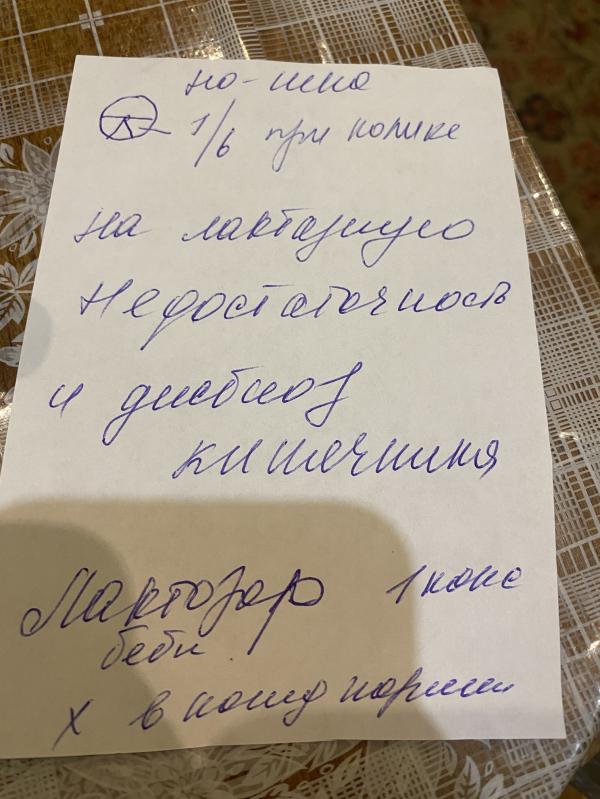 но-шпа
1/6 при колике
на лактазную
недостаточность
и дисбиоз
кишечника
Лактазар 1 капс
беби
х в кажд кормл